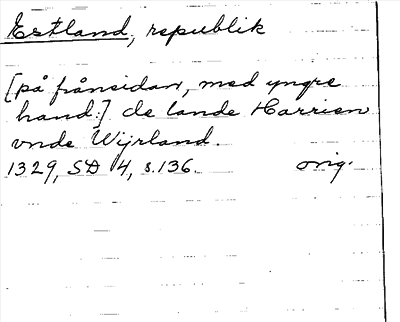 Estland, republik
[på frånsidan, med yngre
hand:] de lande Harrien
vnde Wijrland.
1329, SD 4, s.136. orig.